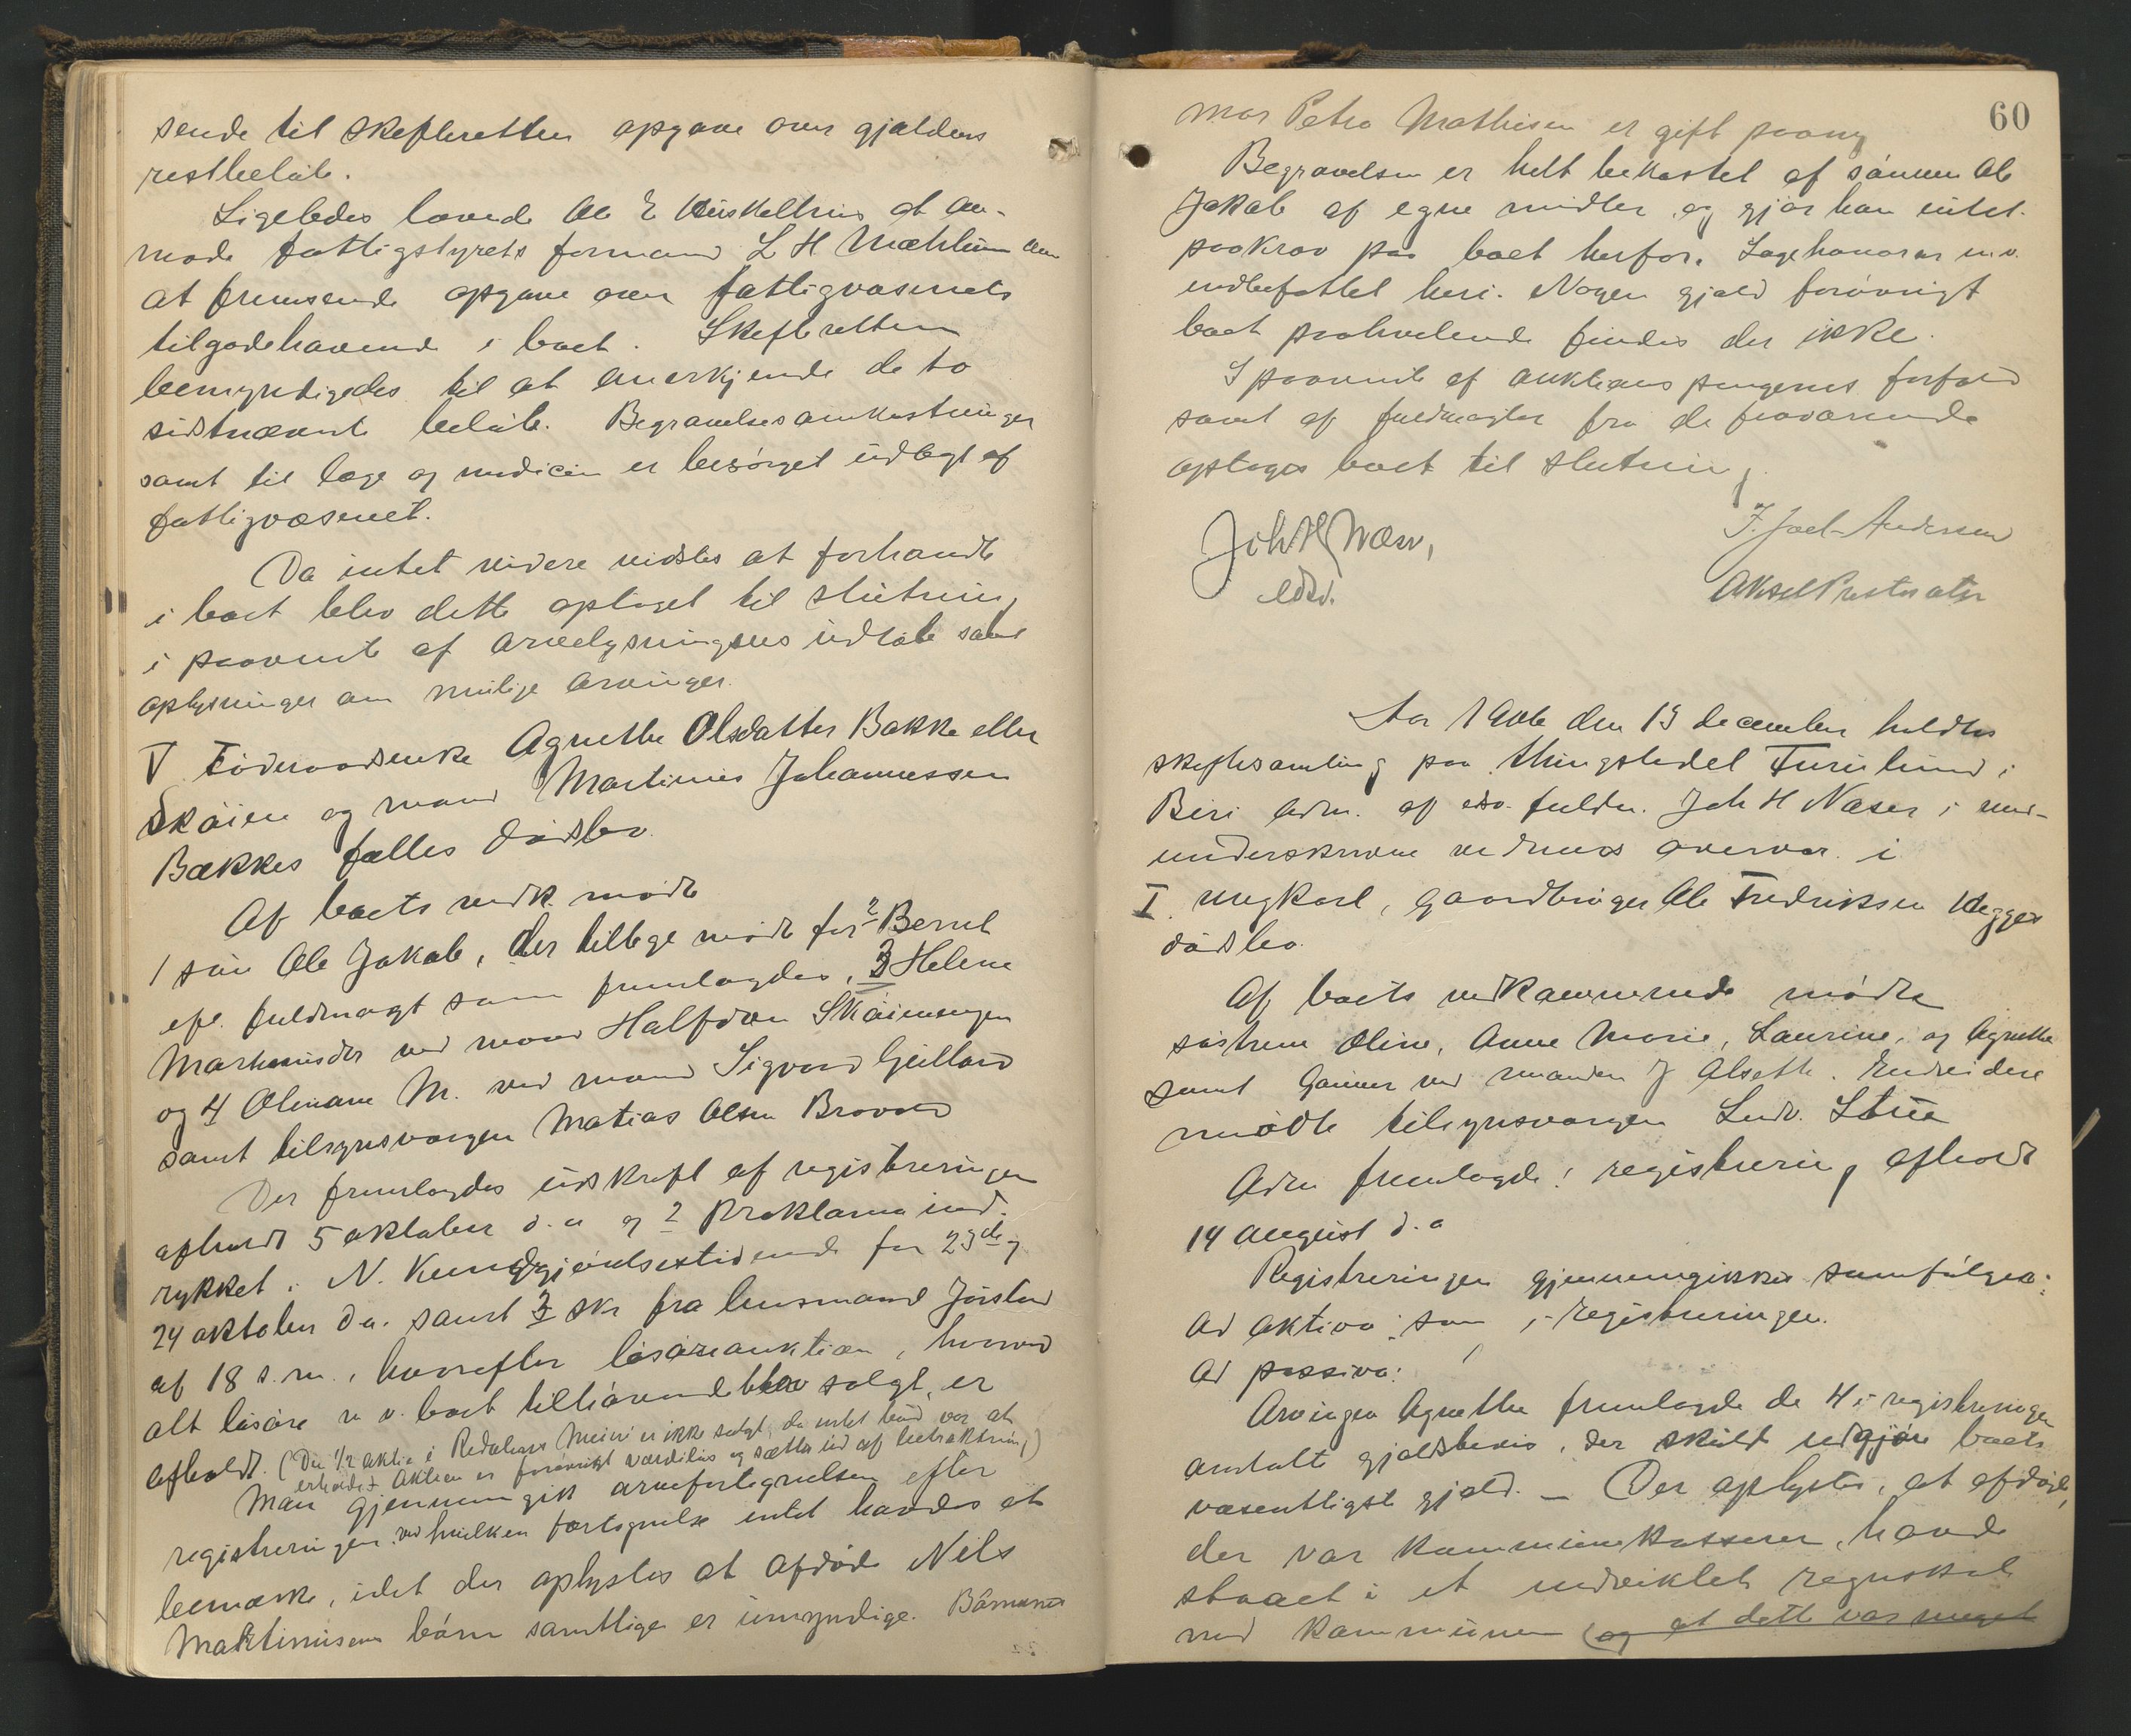 sende til skefteretten opgave over gjældens
restbeløb.
Ligeledes lovede Ole E Kuskeltrud at an-
mode fattigstyrets formand L H Mæhlum om
at fremsende opgave over fattigvæsenets
tilgodehavende i boet. Skefteretten
bemyndigedes til at anerkjende de to
sidstnævnte beløb. Begravelsesomkostninger
samt til læge og medicin er besørget udlagt af
fattigvæsenet.
Da intet videre vidstes at forhandle
i boet blev dette optaget til slutning
i paavente af arvelysningens udløb samt
oplysninger om mulige arvinger.
V Føderaadsenke Agnethe Olsdatter Bakke eller
Skøien og mand Martinus Johannessen
Bækkes fælles dødsbo.
Af boets vedk. mødte
1 søn Ole Jakob, der tillige mødte for 2 Bernt
efl. fuldmagt som fremlagdes, 3 Helene
Martinusdtr ved mand Halfdan Skøiensengen
og 4 Olinane M. ved mand Sigvard Gjilland
samt tilsynsværgen Matias Olsen Braaten
Der fremlagdes udskrift af registreringen
afholdt 5 oktober d.a og 2 Proklama ind-
rykket i N. Kundgjørelsestidende for 23de og
24 oktober d.a. samt 3 skr fra lensmand Jørstad
af 18 s.m., hvorefter løsøreauktion, hvorved
alt løsøre m v. boet tilhørende blev solgt, er
afholdt. (Den 1/2 aktie i Redalens Meieri er ikke solgt, da intet bud var at
erholde. Aktien er forøvrigt værdiløs og sættes ud af betraktning)
Man gjennemgik arvefortegnelsen efter
registreringen ved hvilken fortegnelse intet havdes at
bemærke, idet der oplystes at afdøde Nils
Martinusens børn samtlige er umyndige. Børnenes
60
mor Petra Mathisen er gift paany
Begravelsen er helt bekostet af sønnen Ole
Jakob af egne midler og gjør han intet
paakrav paa boet herfor. Lægehonorar m.v.
indbefattet heri. Nogen gjæld forøvrigt
boet paahvilende findes der ikke.
I paavente af auktionspengenes forfald
samt af fuldmagter fra de fraværende
optages boet til slutning
Joh H Næser,
edsv.
J. Joel-Andersen
Aksel Præstesæter
Aar 1906 den 19 december holdtes
skiftesamling paa thingstedet Furulund i
Biri adm. af edsv. fuldm. Joh H Næser i und-
underskrevne vidners overvær i
I. ungkarl, gaardbruger Ole Fredriksen Hegges
dødsbo.
Af boets vedkommende mødte
søstrene Oline, Anne Marie, Laurine, og Agnethe
samt Gunner ved manden J Alseth. Endvidere
mødte tilsynsværgen Ludv. Stue
Adm fremlagde: registrering afholdt
14 august d.a
Registreringen gjennemgikkes saaledes:
Ad aktiva: som i registreringen.
Ad passiva:
Arvingen Agnethe fremlagde de 4 i registreringen
omtalte gjældsbevis, der skulde udgjøre boets
væsentligste gjæld. — Der oplystes, at afdøde,
der var kommunekasserer, havde
staaet i et indviklet regnskab
med kommunen (og at dette var meget